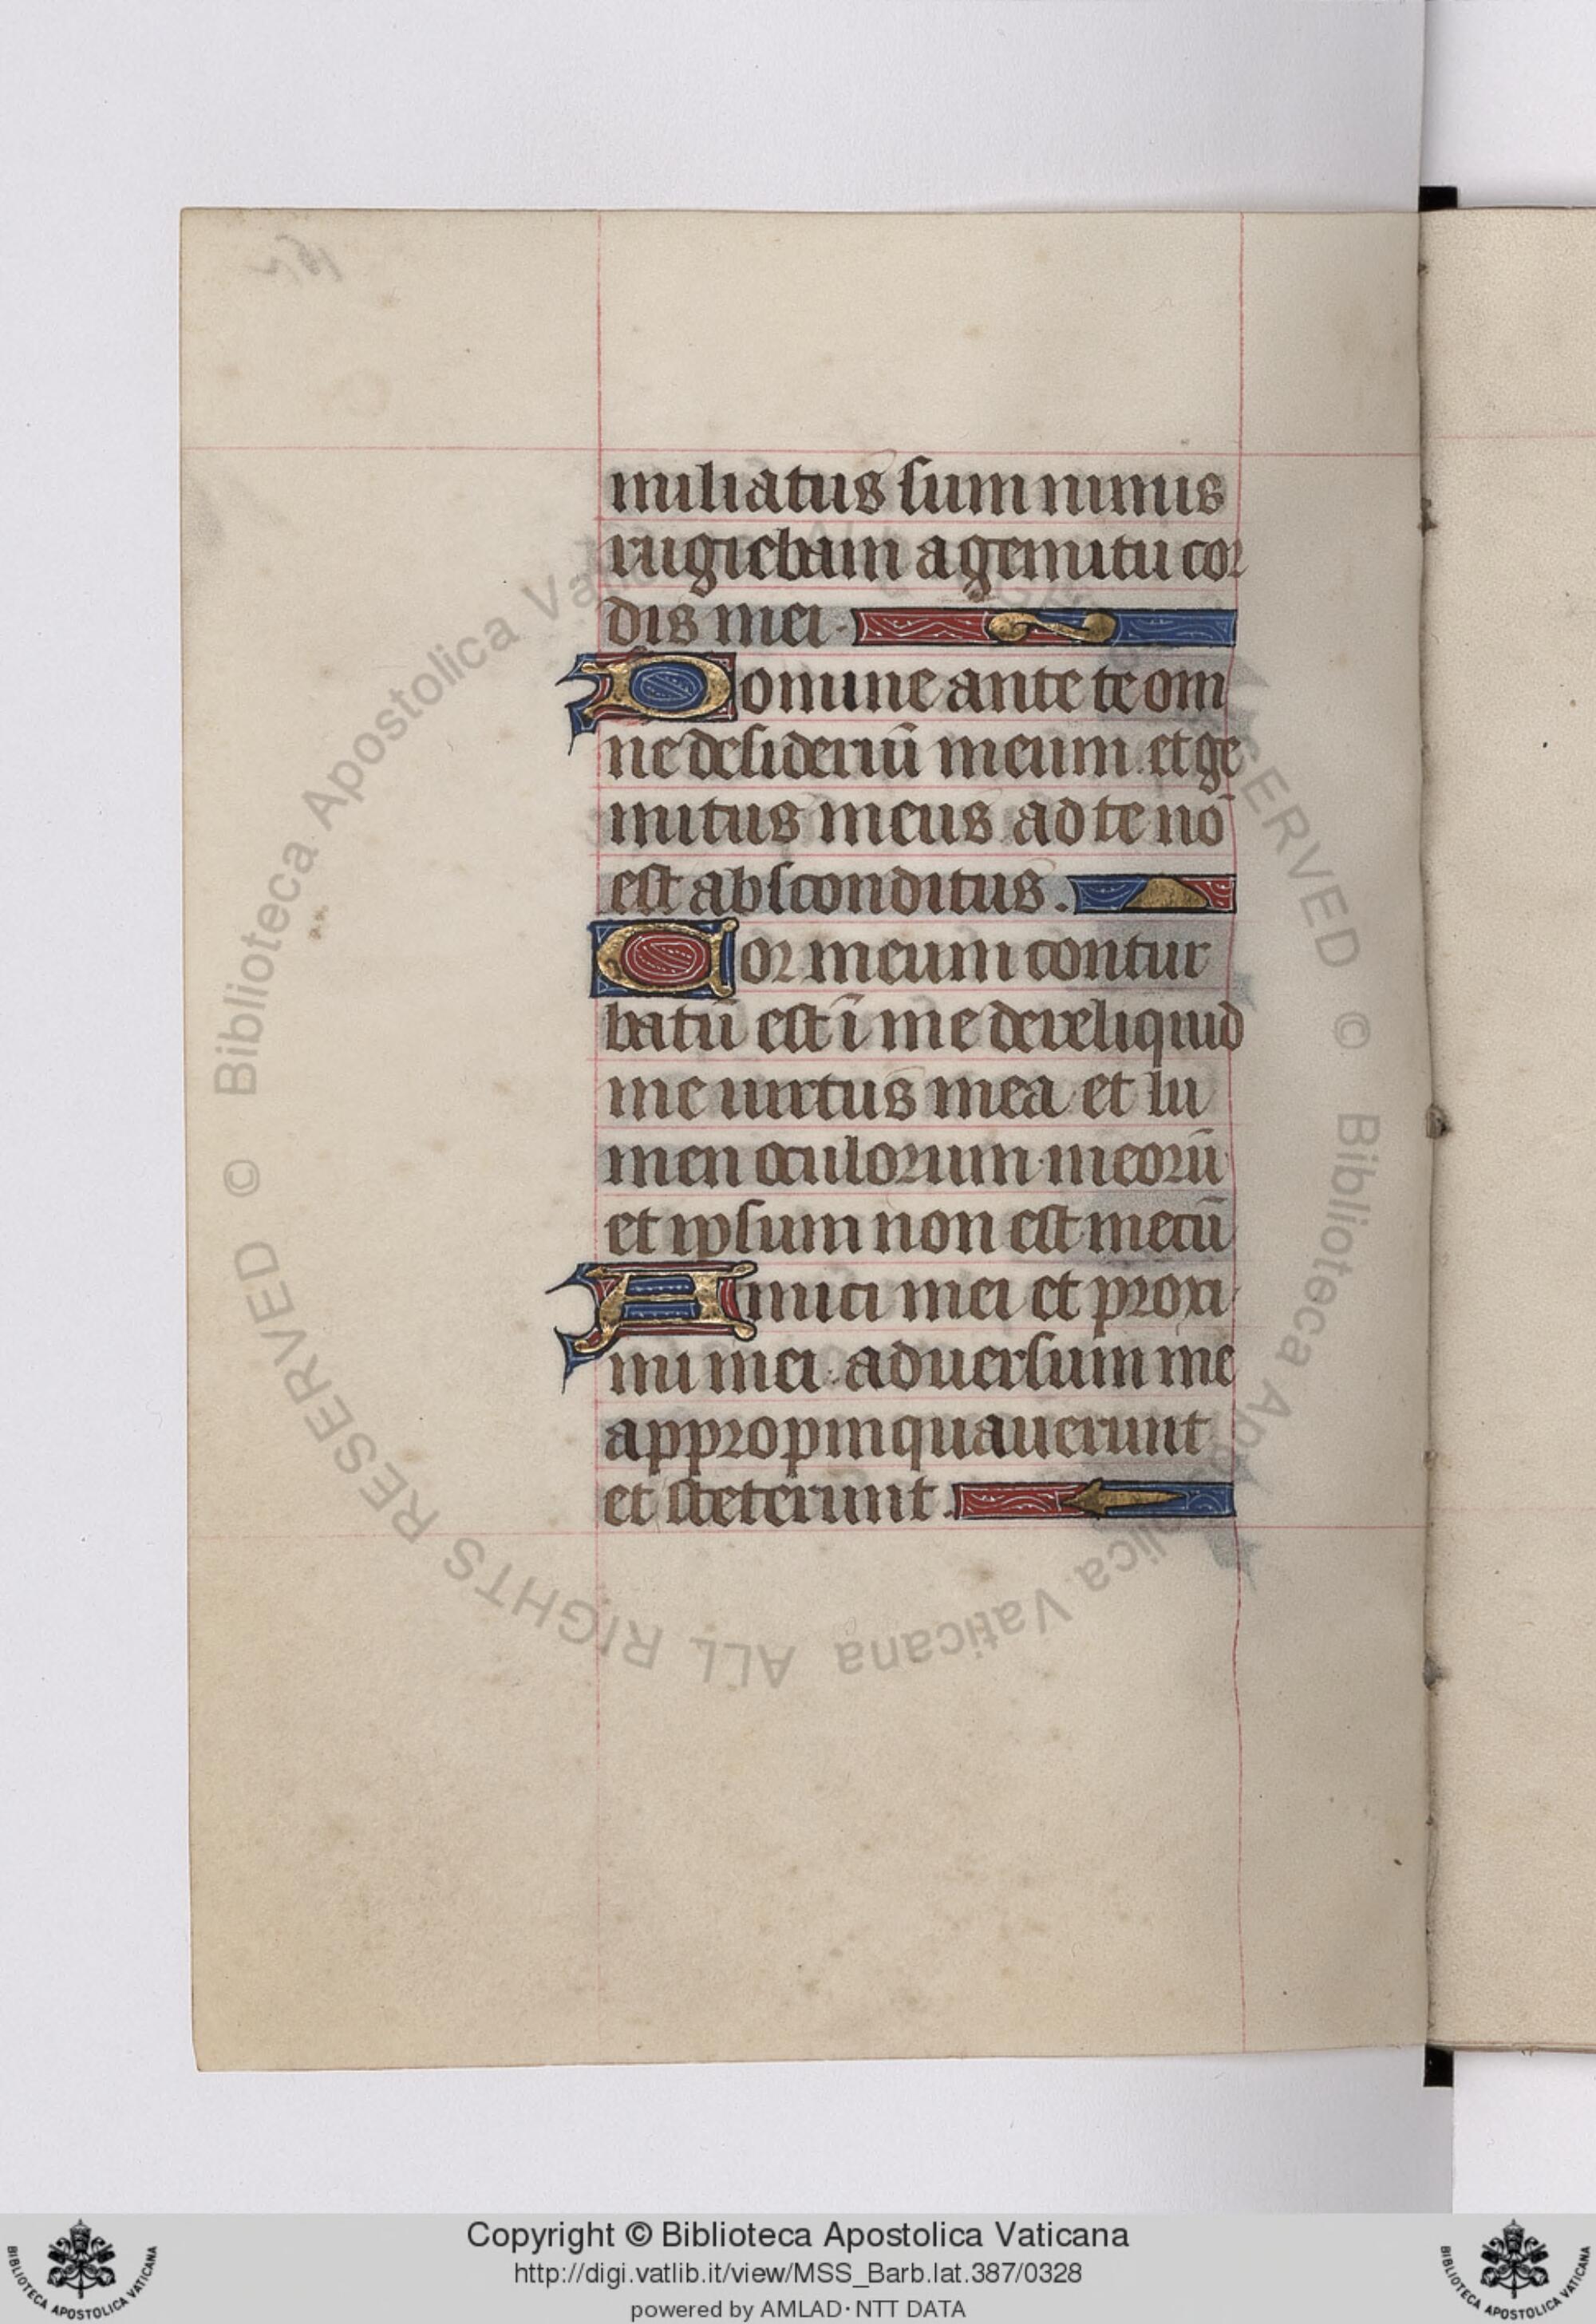 miliatus sum nimis
rugiebam a gemitu cor
dis mei.
Domine ante te om
ne desideriū meum. et ge
mitus meus ad te nō
est absconditus.
Cor meum contur
batū est ī me dereliquid
me uirtus mea et lu
men oculorum meorū
et ipsum non est mecū
Amici mei et proxi
mi mei. aduersum me
appropinquauerunt
et steterunt.
© Biblioteca Apostolica Vaticana ALL RIGHTS RESERVED
© Biblioteca Apostolica Vaticana ALL RIGHTS RESERVED
Copyright © Biblioteca Apostolica Vaticana
http://digi.vatlib.it/view/MSS_Barb.lat.387/0328
powered by AMLAD·NTT DATA
BIBLIOTECA APOSTOLICA VATICANA
BIBLIOTECA APOSTOLICA VATICANA